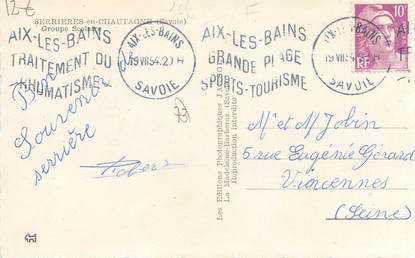 12€
SERRIERES-en-CHAUTAGNE (Savoie)
Groupe Scolaire
AIX-LES-BAINS
TRAITEMENT DU
RHUMATISME
AIX-LES-BAINS
19 VII 54.20 H
SAVOIE
AIX-LES-BAINS
GRANDE PLAGE
SPORTS-TOURISME
AIX-LES-BAINS
19 VII 54
SAVOIE
10F
RF
Bon
Souvenir de
serrière
Les Editions Photographiques
La Madeleine-Barberaz (Savoie)
Reproduction interdite
M. et M Jobin
5 rue Eugénie Gérard
Vincennes
(Seine)